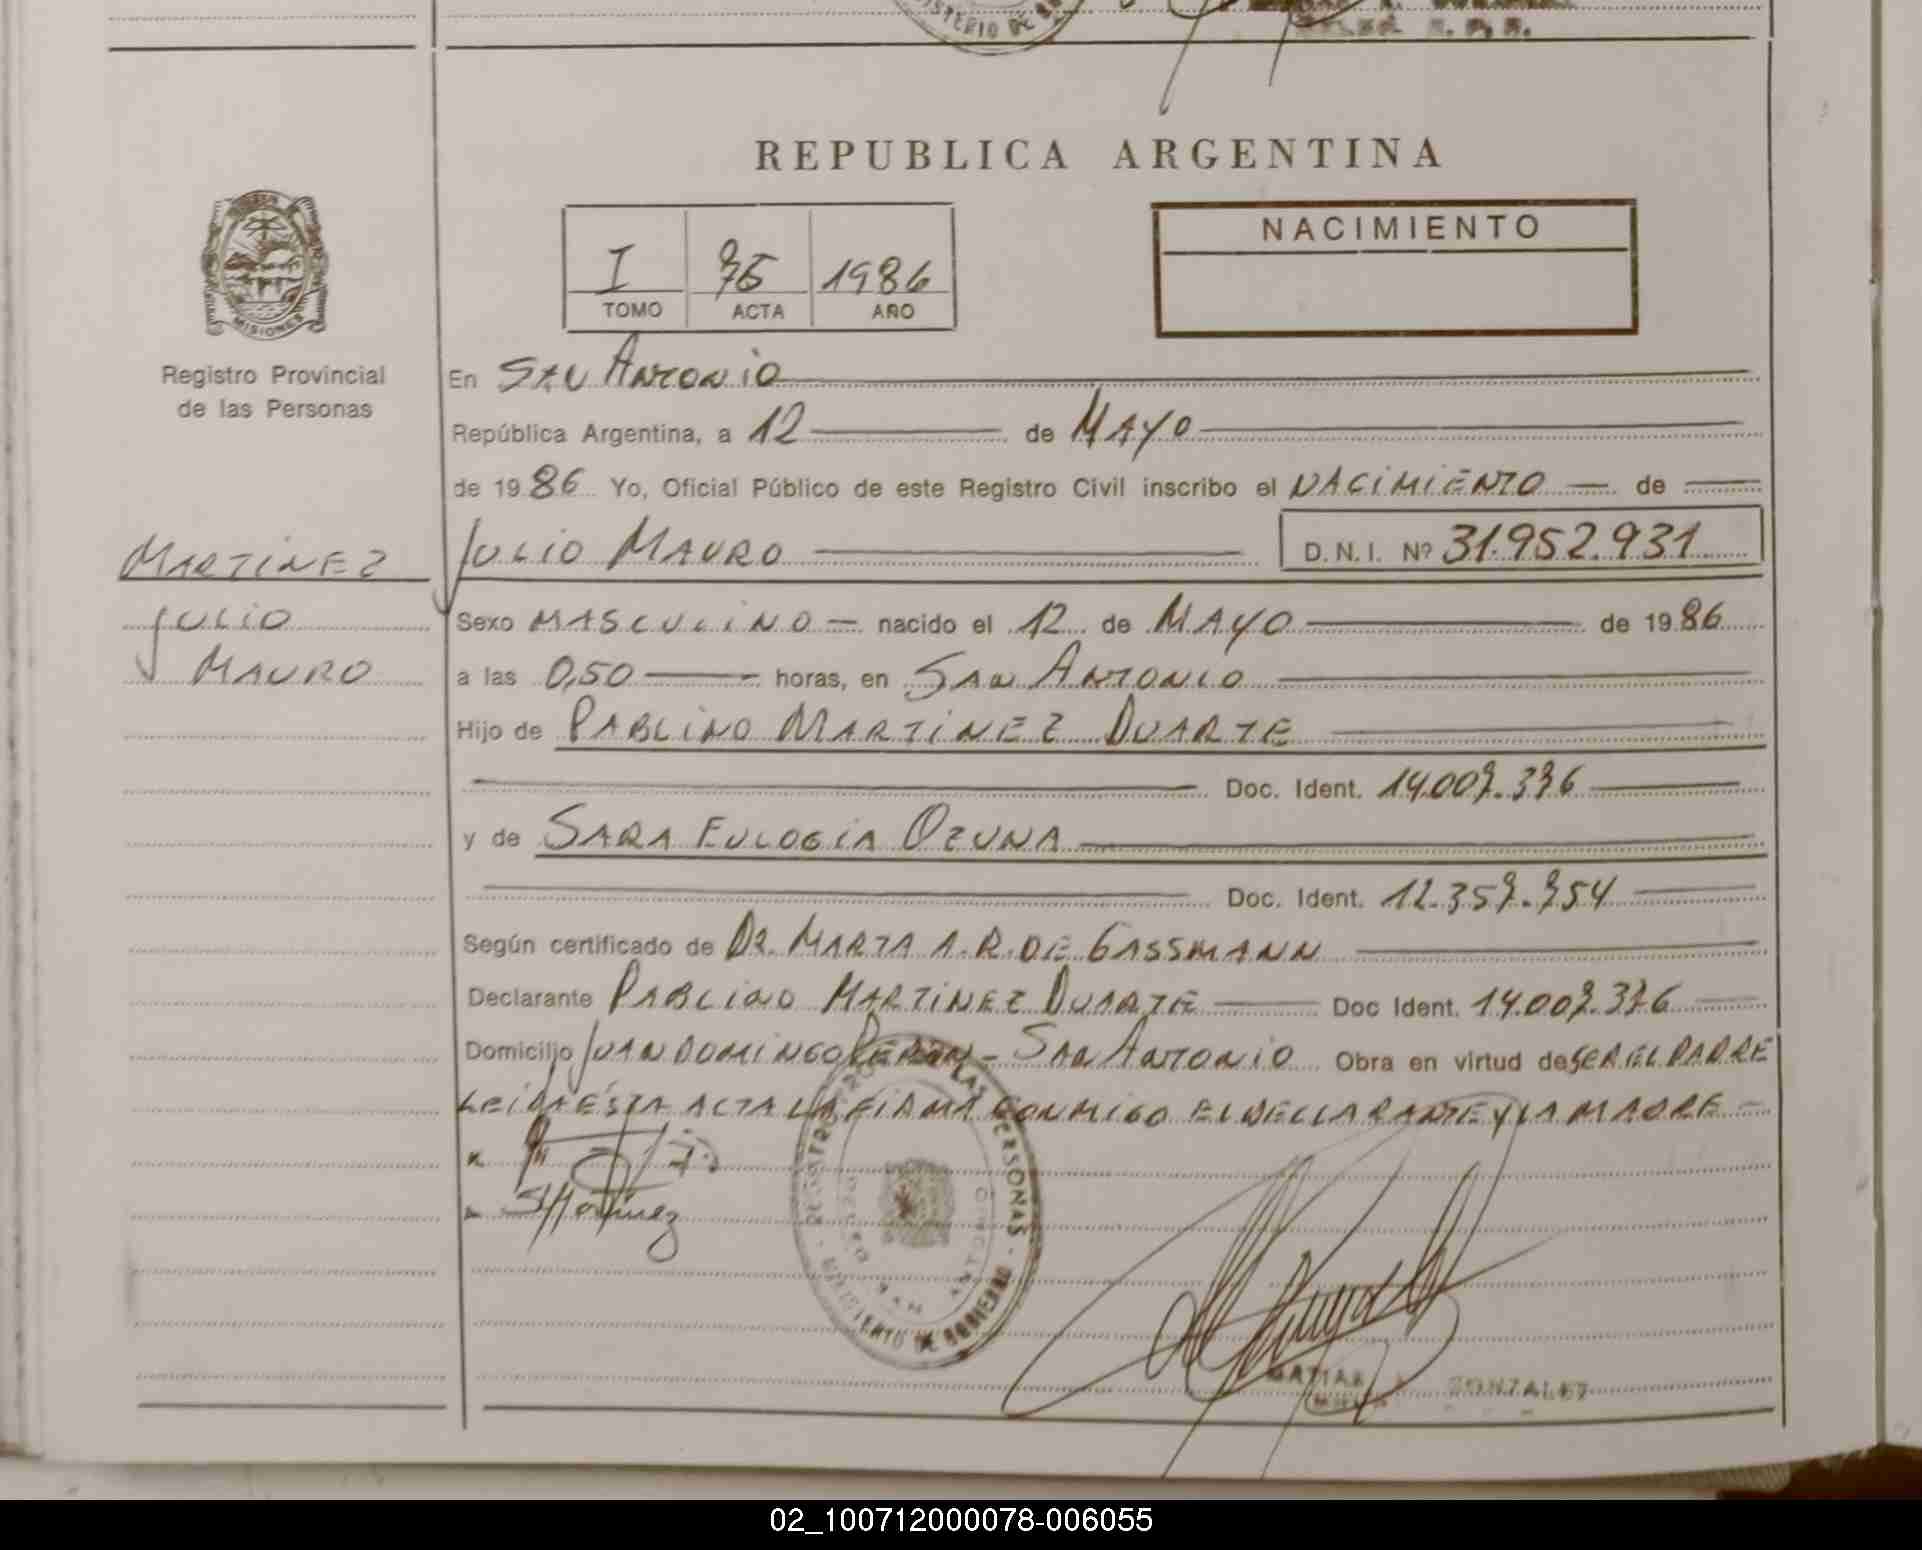 MINISTERIO DE
REPUBLICA ARGENTINA
NACIMIENTO
I 75 1986
TOMO ACTA AÑO
MISIONES
Registro Provincial
de las Personas
En SAN ANTONIO
República Argentina, a 12 de MAYO
de 1986 Yo, Oficial Público de este Registro Civil inscribo el NACIMIENTO de
MARTINEZ
JULIO MAURO D.N.I. Nº 31.952.931
JULIO
MAURO
Sexo MASCULINO nacido el 12 de MAYO de 1986
a las 0,50 horas, en SAN ANTONIO
Hijo de PABLINO MARTINEZ DUARTE
Doc. Ident. 14.007.376
y de SARA EULOGIA OZUNA
Doc. Ident. 12.357.754
Según certificado de DR. MARTA A.R. DE GASSMANN
Declarante PABLINO MARTINEZ DUARTE Doc Ident. 14.007.376
Domicilio JUAN DOMINGO PERON - SAN ANTONIO Obra en virtud de SER EL PADRE
LEIDA ESTA ACTA LA FIRMA CONMIGO EL DECLARANTE Y LA MADRE
SMartinez
REGISTRO PROV. DE LAS PERSONAS
SAN ANTONIO
MINISTERIO DE GOBIERNO
MATIAS GONZALEZ
02_100712000078-006055